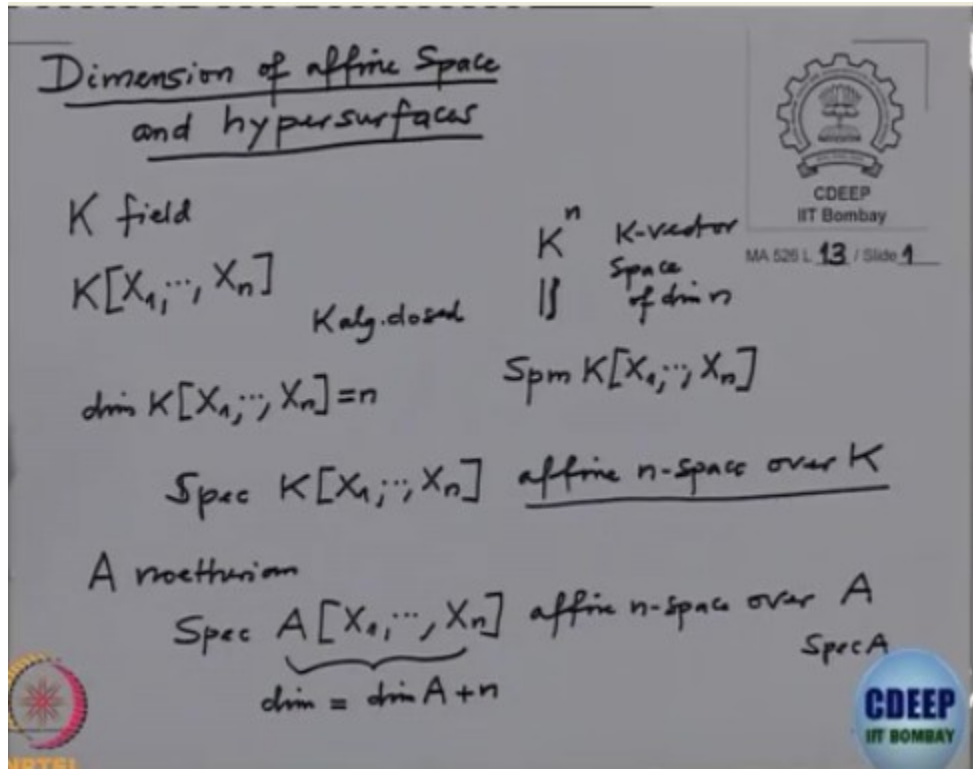 Dimension of affine Space
and hypersurfaces
CDEEP
IIT Bombay
MA 526 L 13 / Slide 1
K field
K[X₁,⋯,Xₙ]
K alg. closed
Kⁿ K-vector
Space
of dim n
dim K[X₁,⋯,Xₙ]=n
Spm K[X₁,⋯,Xₙ]
Spec K[X₁,⋯,Xₙ] affine n-space over K
A noetherian
Spec A[X₁,⋯,Xₙ] affine n-space over A
Spec A
dim = dim A+n
NPTEL
CDEEP
IIT BOMBAY